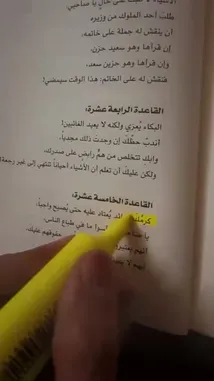 طلب أحد الملوك من وزيره
أن ينقش له جملة على خاتمه.
إن قرأها وهو سعيد حزن،
وإن قرأها وهو حزين سعد،
فنقش له على الخاتم: هذا الوقت سيمضي!
القاعدة الرابعة عشرة:
البكاء يُعزي ولكنه لا يعيد الغائبين!
اندبْ حظك إن وجدت ذلك مجدياً،
وابكِ لتتخلص من همٍّ رابضٍ على صدرك،
ولكن عليك أن تعلم أن الأشياء أحياناً تنتهي إلى غير رجعة
القاعدة الخامسة عشرة:
يُعتاد عليه حتى يُصبح واجباً،
ما هي طباع الناس،
حقوقهم عليك،
أنهم لا